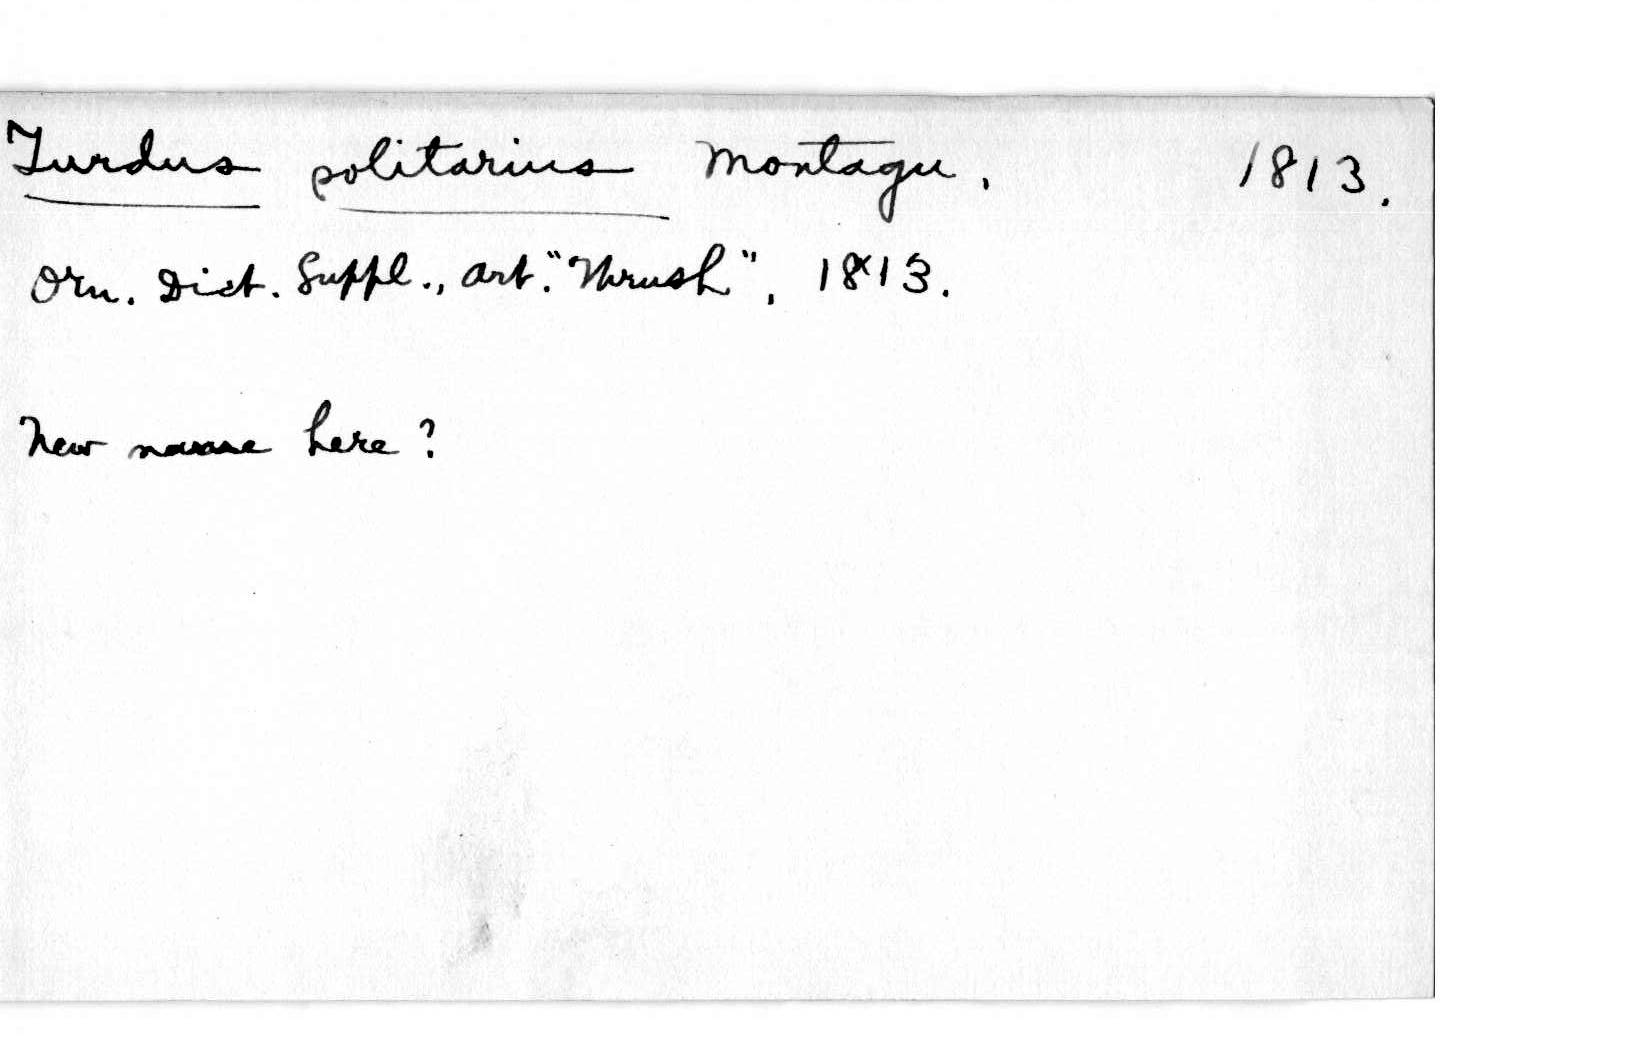 Turdus politarius Montagu. 1813.
Orn. Dict. Suppl., art. "Thrush", 1813.
New name here?